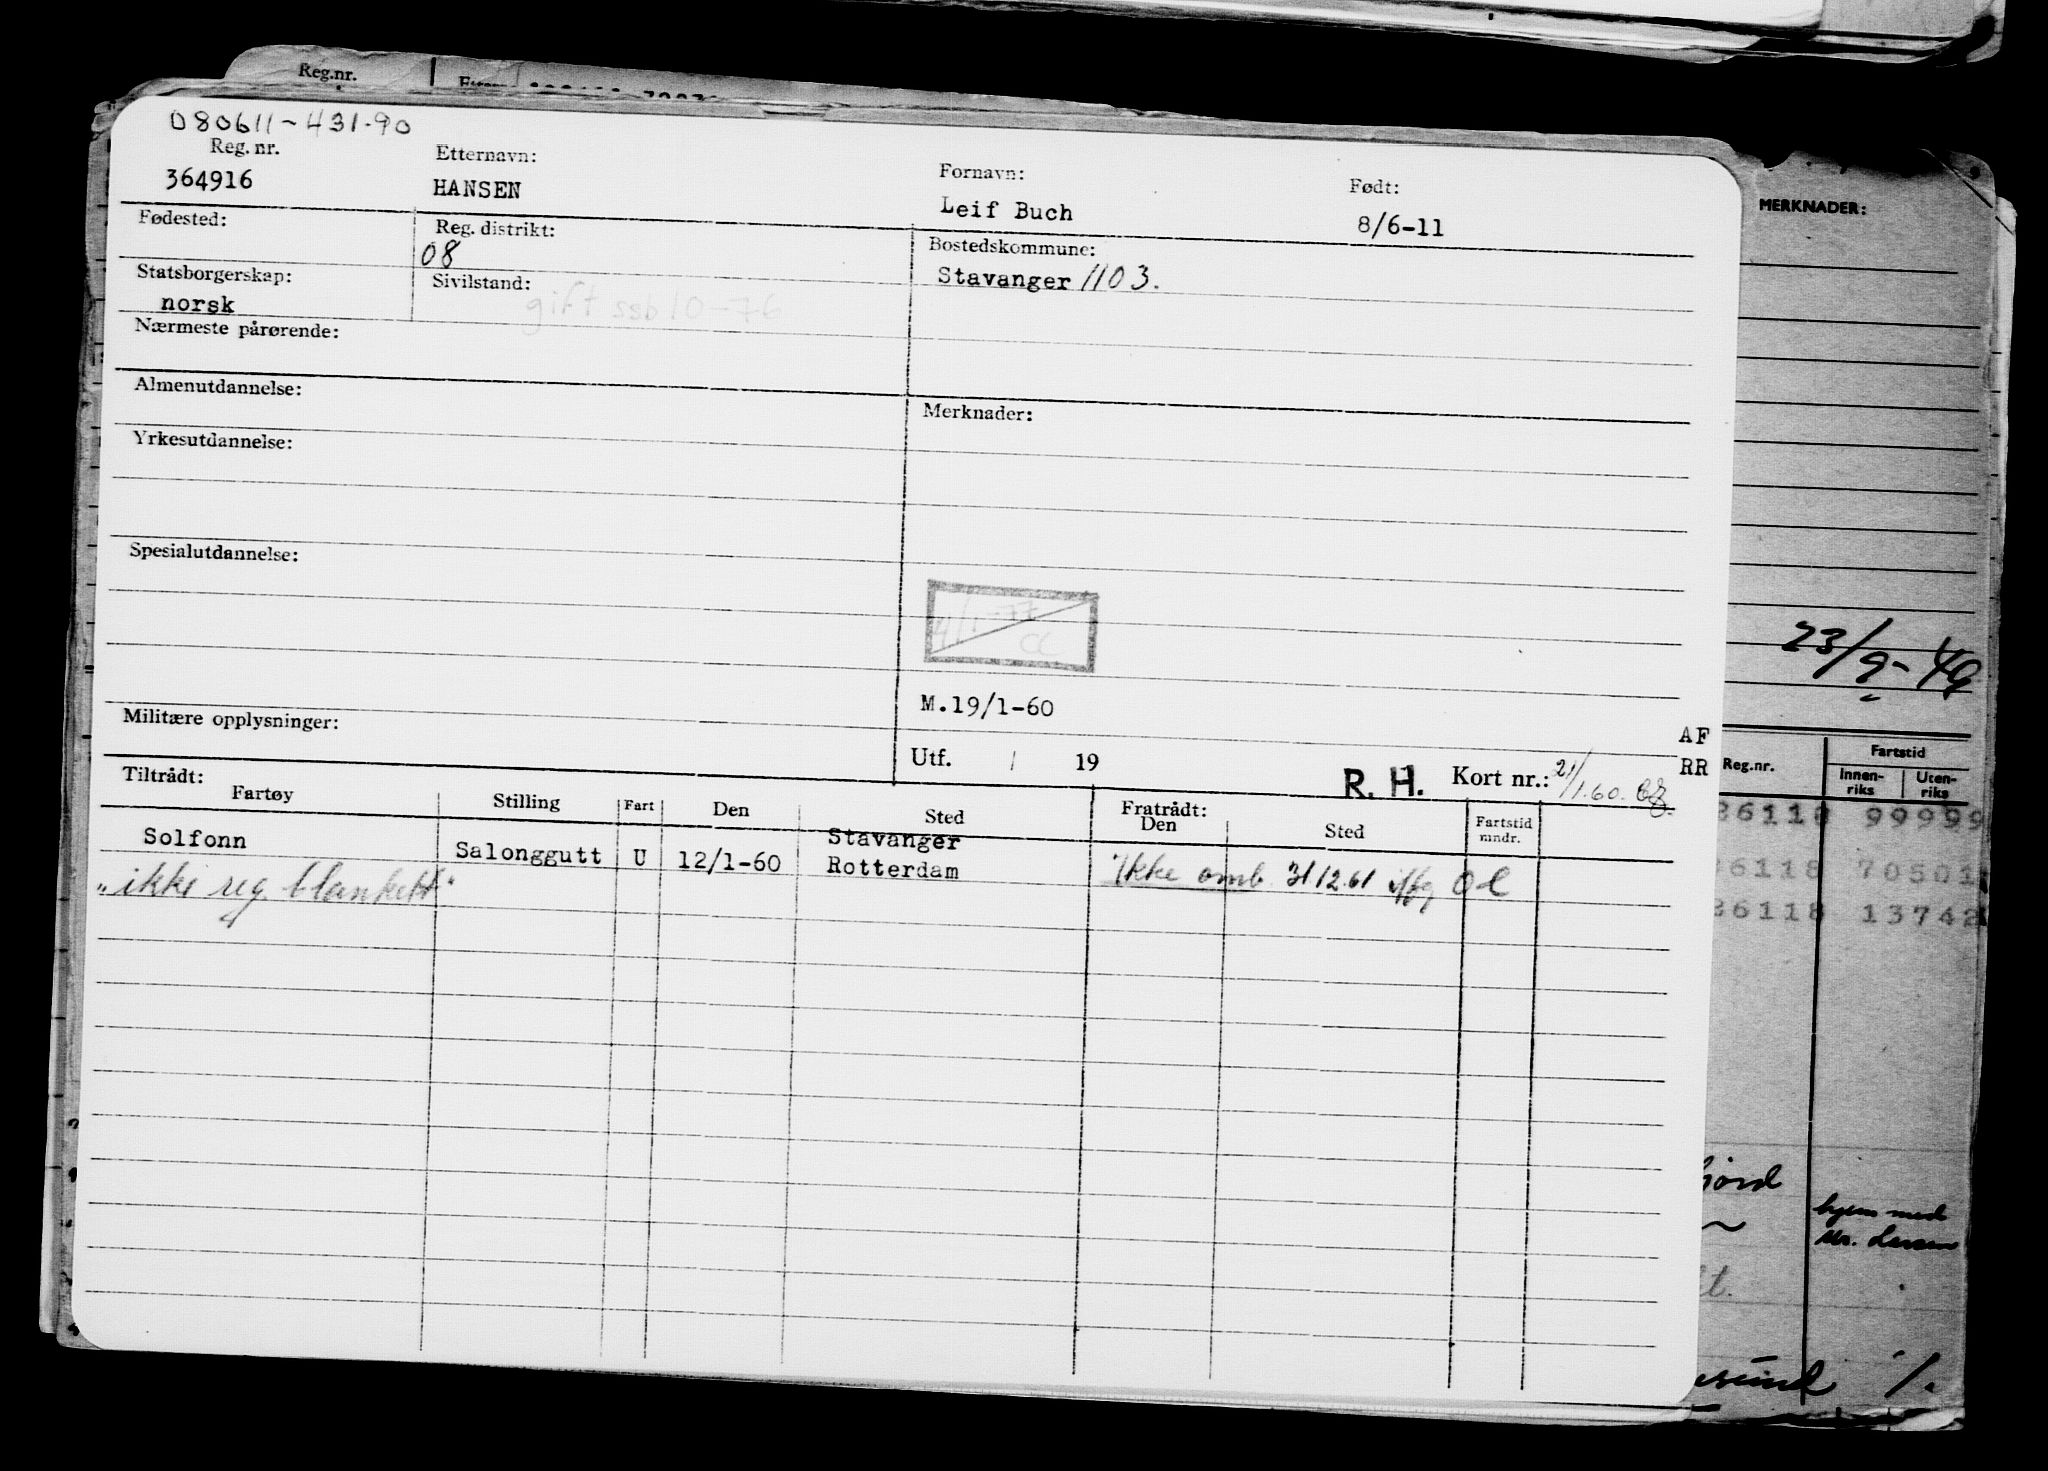 Reg.nr.
080611-431.90
Reg. nr. Etternavn: Fornavn: Født:
364916 HANSEN Leif Buch 8/6-11
MERKNADER:
Fødested: Reg. distrikt: Bostedskommune:
08 Stavanger 1103.
Statsborgerskap: Sivilstand:
norsk gift ssb 10-76
Nærmeste pårørende:
Almenutdannelse: Merknader:
Yrkesutdannelse:
Spesialutdannelse:
4/1-77
CC
23/9-49
M.19/1-60
Militære opplysninger: AF
Utf. / 19 RR
R. H. Kort nr.: 21/1.60.
Reg.nr. Fartstid
Innen-riks Uten-riks
Tiltrådt: Fratrådt:
Fartøy Stilling Fart Den Sted Den Sted Fartstid mndr.
Solfonn Salonggutt U 12/1-60 Stavanger
Rotterdam Ikke omb 31/12.61
"ikke reg. blankett"
36118 99999
36118 70501
36118 13742
hjem med